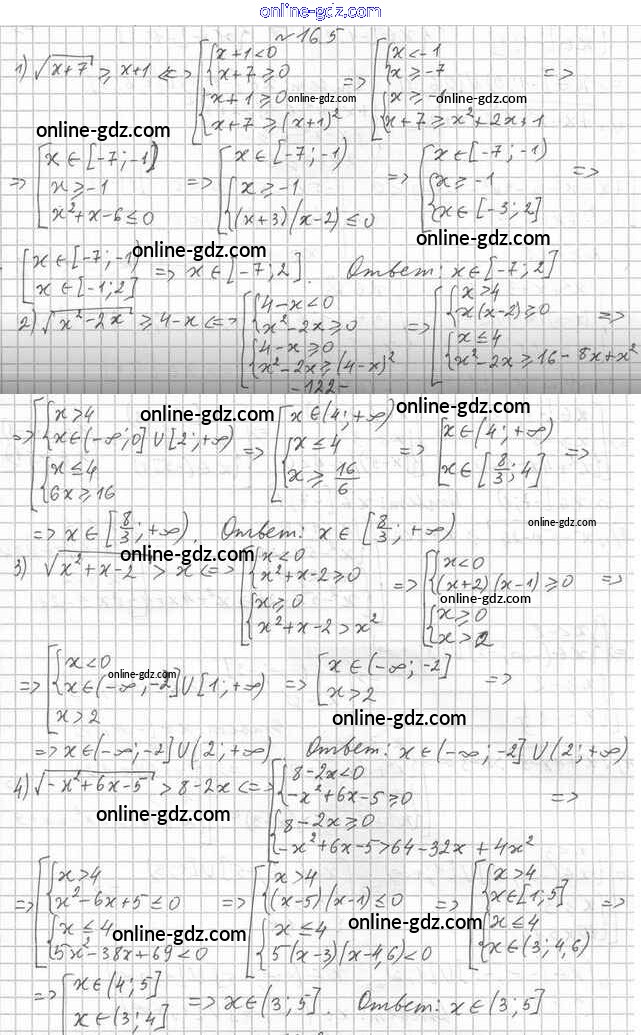 online-gdz.com
№ 16.5
1) √(x+7) ≥ x+1 <=> [{x+1<0 {x+7≥0 {x+1≥0 {x+7≥(x+1)² => [{x<-1 {x≥-7 {x≥-1 {x+7≥x²+2x+1 =>
online-gdz.com online-gdz.com online-gdz.com
=> [x∈[-7;-1) {x≥-1 x²+x-6≤0 => [x∈[-7;-1) {x≥-1 (x+3)(x-2)≤0 => [x∈[-7;-1) {x≥-1 x∈[-3;2] =>
online-gdz.com online-gdz.com
[x∈[-7;-1) x∈[-1;2] => x∈[-7;2]. Ответ: x∈[-7;2]
2) √(x²-2x) ≥ 4-x <=> [{4-x<0 {x²-2x≥0 {4-x≥0 {x²-2x≥(4-x)² => [{x>4 {x(x-2)≥0 {x≤4 {x²-2x≥16-8x+x² =>
-122-
online-gdz.com online-gdz.com
=> [{x>4 {x∈(-∞;0]∪[2;+∞) {x≤4 {6x≥16 => [x∈(4;+∞) {x≤4 {x≥16/6 => [x∈(4;+∞) x∈[8/3;4] =>
online-gdz.com
=> x∈[8/3;+∞). Ответ: x∈[8/3;+∞)
online-gdz.com
3) √(x²+x-2) > x <=> [{x<0 {x²+x-2≥0 {x≥0 {x²+x-2>x² => [{x<0 {(x+2)(x-1)≥0 {x≥0 {x>2 =>
online-gdz.com
=> [{x<0 {x∈(-∞;-2]∪[1;+∞) x>2 => [x∈(-∞;-2] x>2 =>
online-gdz.com online-gdz.com
=> x∈(-∞;-2]∪(2;+∞) Ответ: x∈(-∞;-2]∪(2;+∞)
4) √(-x²+6x-5) > 8-2x <=> [{8-2x<0 {-x²+6x-5≥0 {8-2x≥0 {-x²+6x-5>64-32x+4x² =>
online-gdz.com
=> [{x>4 {x²-6x+5≤0 {x≤4 {5x²-38x+69<0 => [{x>4 {(x-5)(x-1)≤0 {x≤4 {5(x-3)(x-4,6)<0 => [{x>4 {x∈[1;5] {x≤4 {x∈(3;4,6) =>
online-gdz.com online-gdz.com
=> [x∈(4;5] x∈(3;4] => x∈(3;5]. Ответ: x∈(3;5]